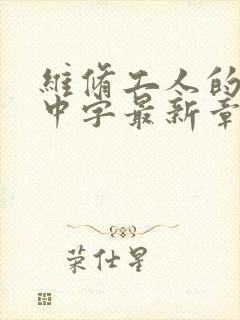 維修工人的
中字最新章
荣仕星